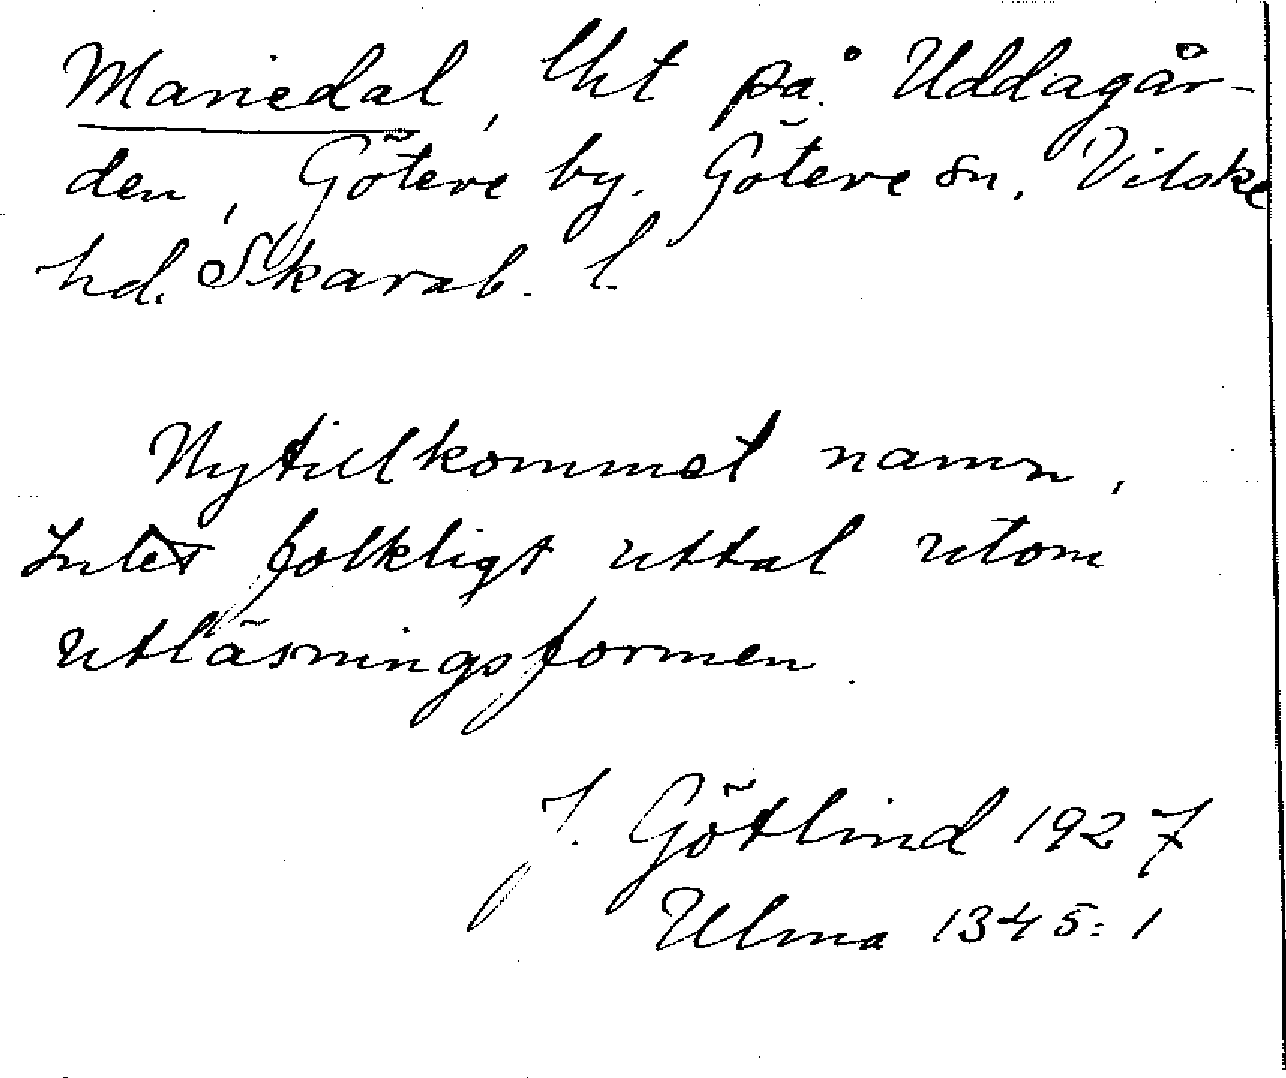 Mariedal, lht på Uddagår-
den, Göteve by. Göteve sn. Vilske
hd. Skarab. l.
Nytillkommet namn.
Intet folkligt uttal utom
utläsningsformen.
J. Götlind 1927
Ulma 1345:1